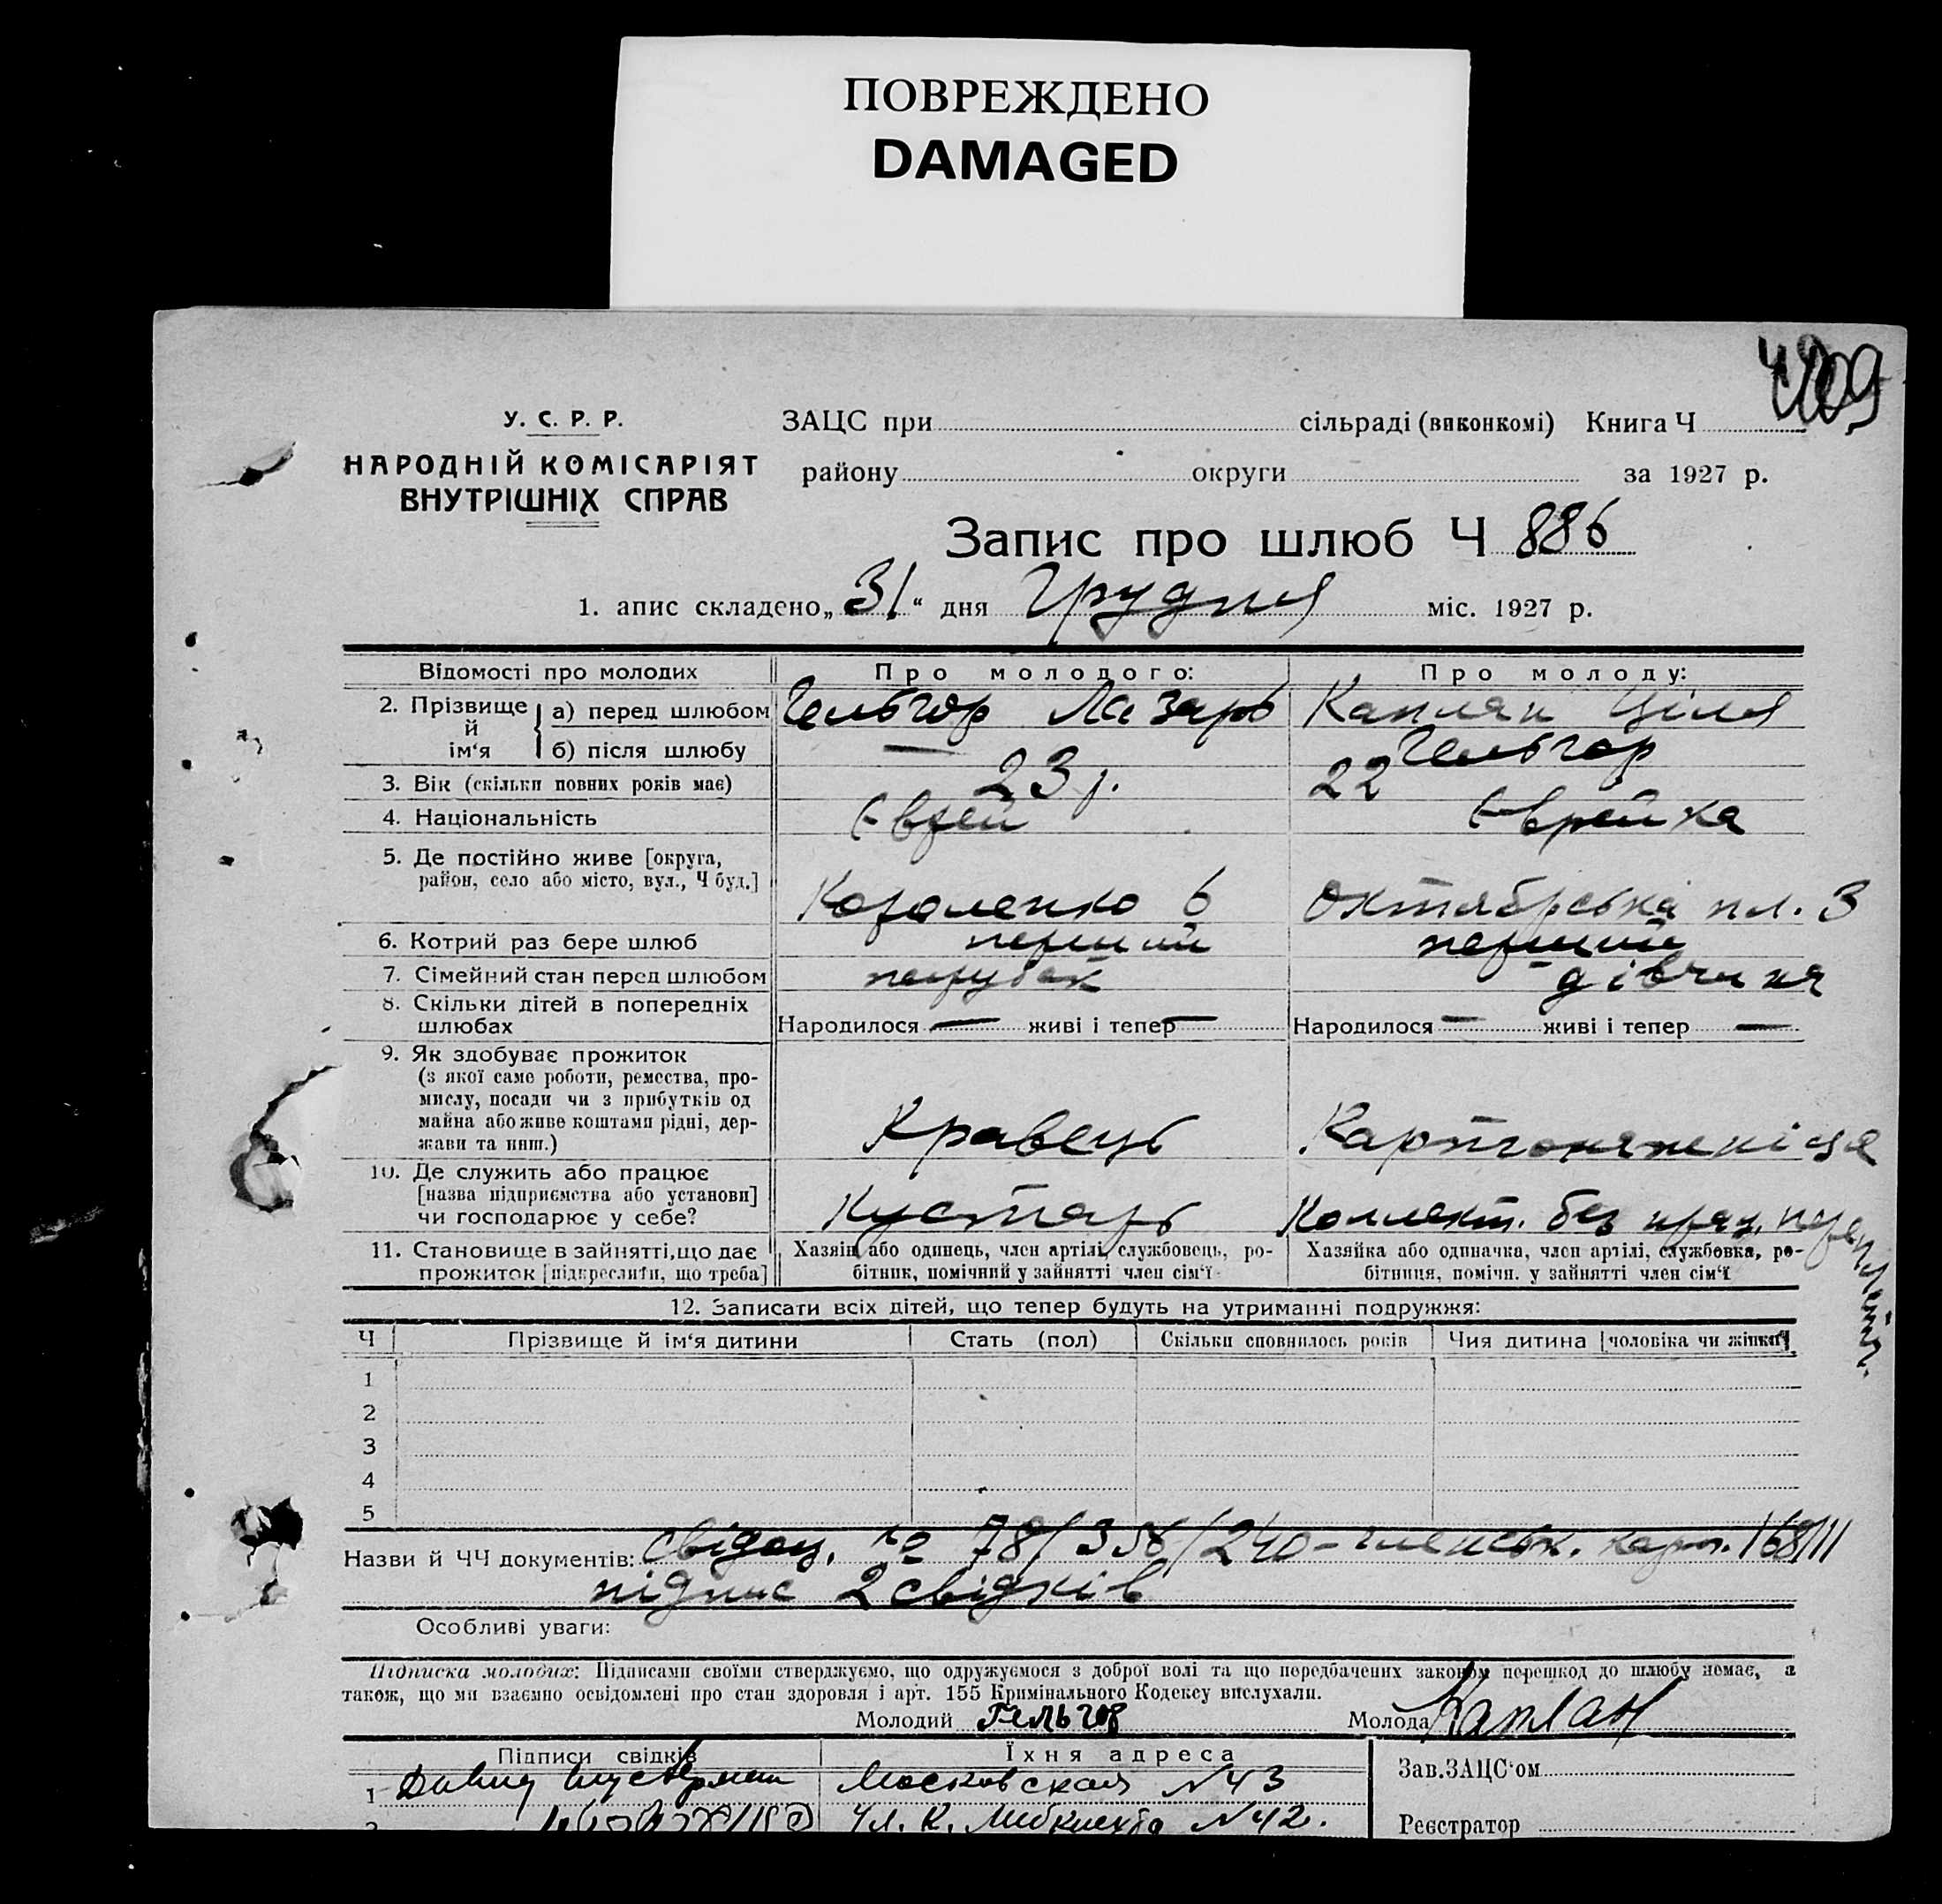 ПОВРЕЖДЕНО
DAMAGED
У. С. Р. Р.
НАРОДНІЙ КОМІСАРІЯТ
ВНУТРІШНІХ СПРАВ
ЗАЦС при сільраді (виконкомі) Книга Ч
району округи за 1927 р.
Запис про шлюб Ч 886
1. апис складено „31“ дня Грудня міс. 1927 р.
Відомості про молодих Про молодого: Про молоду:
2. Прізвище й ім‘я а) перед шлюбом Гельгор Лазарь Каплан Ціля
б) після шлюбу — Гельгор
3. Вік (скільки повних років має) 23 р. 22
4. Національність Єврей Єврейка
5. Де постійно живе [округа,
район, село або місто, вул., Ч буд.] 6 Октябрська пл. 3
6. Котрий раз бере шлюб перший перший
7. Сімейний стан перед шлюбом парубок дівчина
8. Скільки дітей в попередніх
шлюбах Народилося — живі і тепер — Народилося — живі і тепер —
9. Як здобуває прожиток
(з якої саме роботи, ремества, про-
мислу, посади чи з прибутків од
майна або живе коштами рідні, дер-
жави та инш.) Кравець
10. Де служить або працює
[назва підприємства або установи]
чи господарює у себе? Кустарь Коллект. без
11. Становище в зайнятті, що дає
прожиток [підкреслити, що треба]
Хазяїн або одинець, член артілі, службовець, ро-
бітник, помічний у зайнятті член сім‘ї
Хазяйка або одиначка, член артілі, службовка, ро-
бітниця, помічн. у зайнятті член сім‘ї
12. Записати всіх дітей, що тепер будуть на утриманні подружжя:
Ч Прізвище й ім‘я дитини Стать (пол) Скільки сповнилось років Чия дитина [чоловіка чи жінки]
1
2
3
4
5
Назви й ЧЧ документів: свідоц. № 78/356/240 - членськ. карт. 168/11
підпис 2 свідків
Особливі уваги:
Підписка молодих: Підписами своїми стверджуємо, що одружуємося з доброї волі та що передбачених законом перешкод до шлюбу немає, а
також, що ми взаємно освідомлені про стан здоровля і арт. 155 Кримінального Кодексу вислухали.
Молодий Гельгор Молода Каплан
Підписи свідків Їхня адреса Зав. ЗАЦС‘ом
1 Давид Шустерман Московская № 43
2 Ул. К. Либкнехта № 42.
Реєстратор